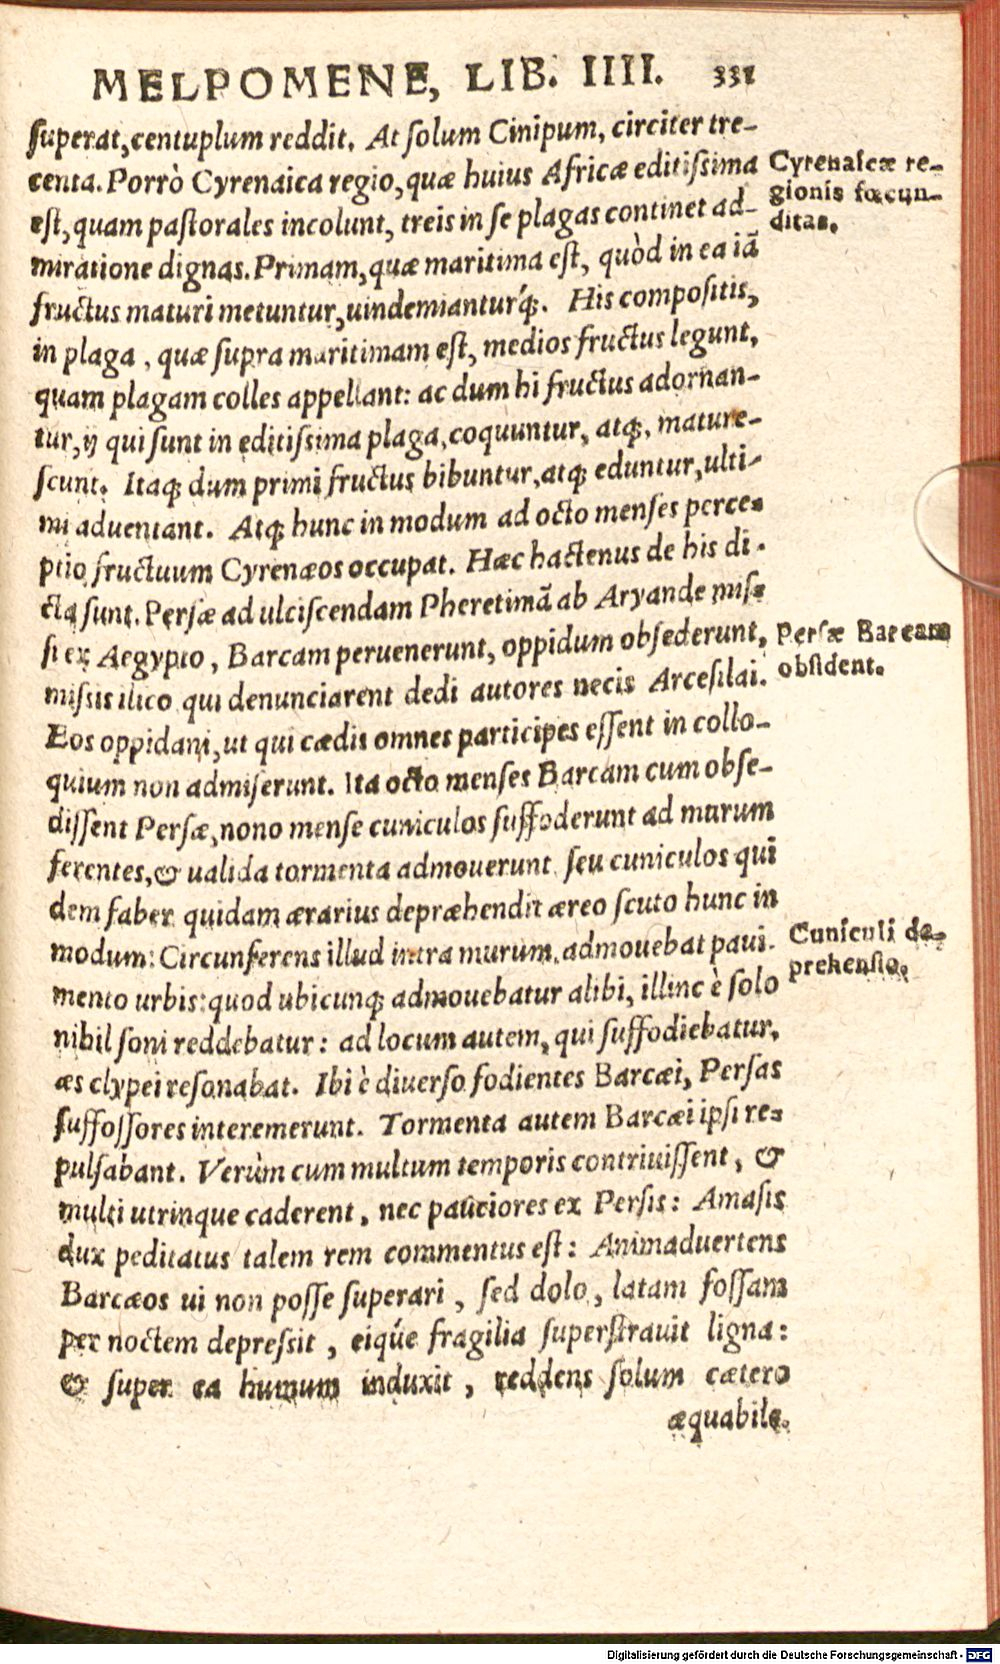 MELPOMENE, LIB. IIII. 331
ſuperat, centuplum reddit. At ſolum Cinipum, circiter tre-
centa. Porrò Cyrenaica regio, quæ huius Africæ editiſsima
eſt, quam paſtorales incolunt, treis in ſe plagas continet ad-
miratione dignas. Primam, quæ maritima eſt, quòd in ea iã
fructus maturi metuntur, uindemianturq́;. His compoſitis,
in plaga, quæ ſupra maritimam eſt, medios fructus legunt,
quam plagam colles appellant: ac dum hi fructus adornan-
tur, ij qui ſunt in editiſsima plaga, coquuntur, atq;, mature-
ſcunt. Itaq; dum primi fructus bibuntur, atq; eduntur, ulti-
mi aduentant. Atq; hunc in modum ad octo menſes perce-
ptio fructuum Cyrenæos occupat. Hæc hactenus de his di-
cta ſunt. Perſæ ad ulciſcendam Pheretimã ab Aryande miſ-
ſi ex Aegypto, Barcam peruenerunt, oppidum obſederunt,
miſsis ilico qui denunciarent dedi autores necis Arceſilai.
Eos oppidani, ut qui cædis omnes participes eſſent in collo-
quium non admiſerunt. Ita octo menſes Barcam cum obſe-
diſſent Perſæ, nono menſe cuniculos ſuffoderunt ad murum
ferentes, & ualida tormenta admouerunt. ſeu cuniculos qui
dem faber quidam ærarius depræhendit æreo ſcuto hunc in
modum: Circunferens illud intra murum, admouebat paui-
mento urbis: quod ubicunq; admouebatur alibi, illinc è ſolo
nihil ſoni reddebatur: ad locum autem, qui ſuffodiebatur,
æs clypei reſonabat. Ibi è diuerſo fodientes Barcæi, Perſas
ſuffoſſores interemerunt. Tormenta autem Barcæi ipſi re-
pulſabant. Verùm cum multum temporis contriuiſſent, &
multi utrinque caderent, nec pauciores ex Perſis: Amaſis
dux peditatus talem rem commentus eſt: Animaduertens
Barcæos ui non poſſe ſuperari, ſed dolo, latam foſſam
per noctem depreſsit, eiq́ue fragilia ſuperſtrauit ligna:
& ſuper ea humum induxit, reddens ſolum cætero
æquabile.
Cyrenaicæ re-
gionis fœcun-
ditas.
Perſæ Barcam
obſident.
Cuniculi de-
prehenſio.
Digitalisierung gefördert durch die Deutsche Forschungsgemeinschaft - DFG